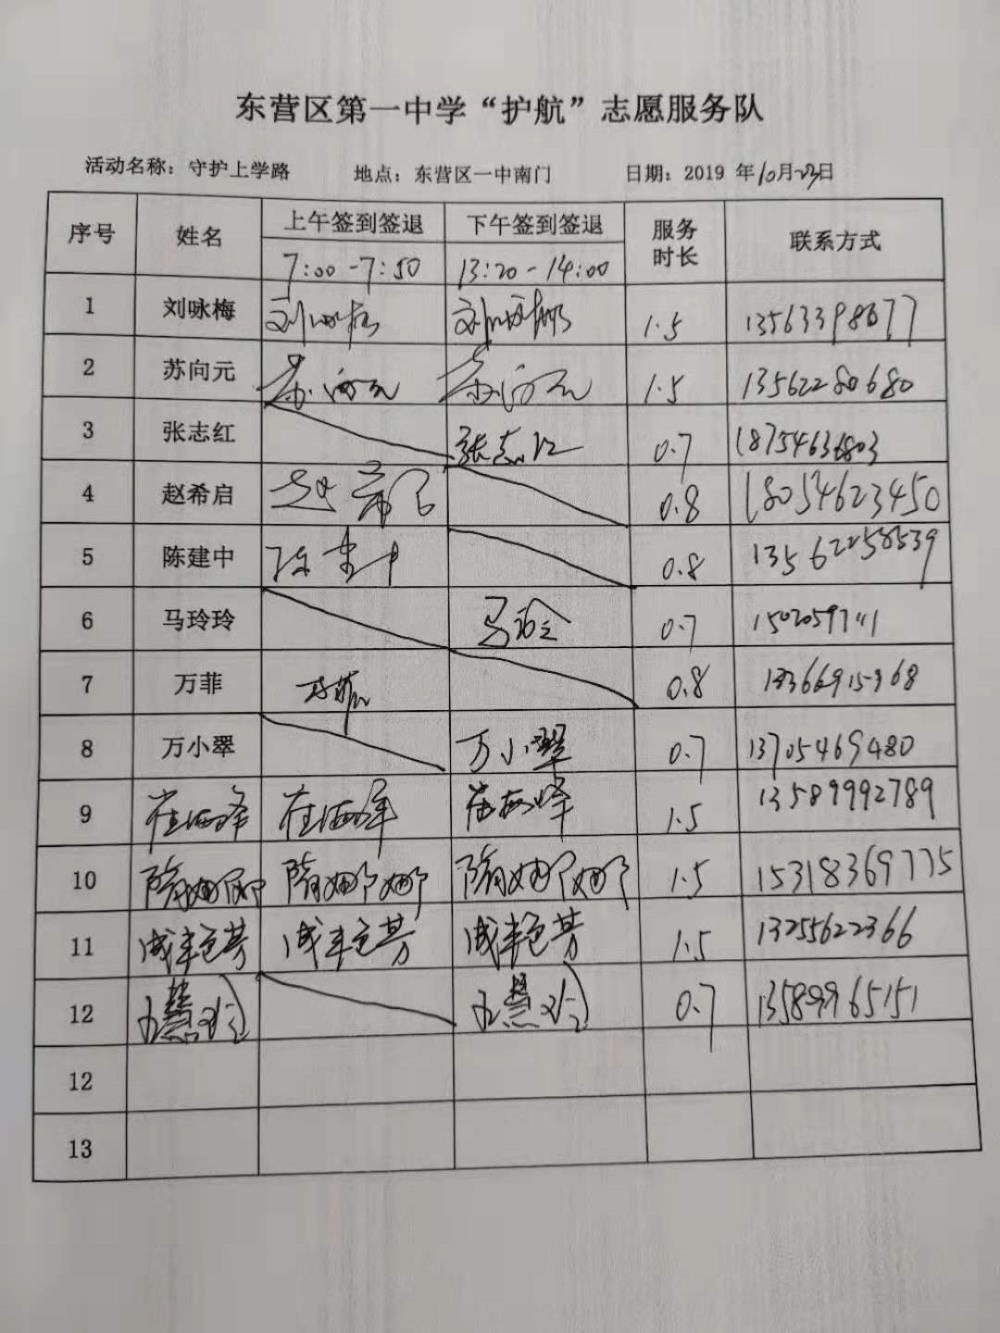 东营区第一中学“护航”志愿服务队
活动名称：守护上学路 地点：东营区一中南门 日期：2019 年10月23日
序号 姓名 上午签到签退 下午签到签退 服务时长 联系方式
7:00-7:50 13:20-14:00
1 刘咏梅 刘咏梅 刘咏梅 1.5 13563398677
2 苏向元 苏向元 苏向元 1.5 13562280680
3 张志红 张志红 0.7 18754636803
4 赵希启 赵希启 0.8 18054623450
5 陈建中 陈建中 0.8 13562258539
6 马玲玲 马玲 0.7
7 万菲 万菲 0.8
8 万小翠 万小翠 0.7 13705469480
9 崔海峰 崔海峰 崔海峰 1.5 13589992789
10 隋娜娜 隋娜娜 隋娜娜 1.5 15318369775
11 成丰艳芳 成丰艳芳 成丰艳芳 1.5 13255622366
12 0.7 13589965151
12
13